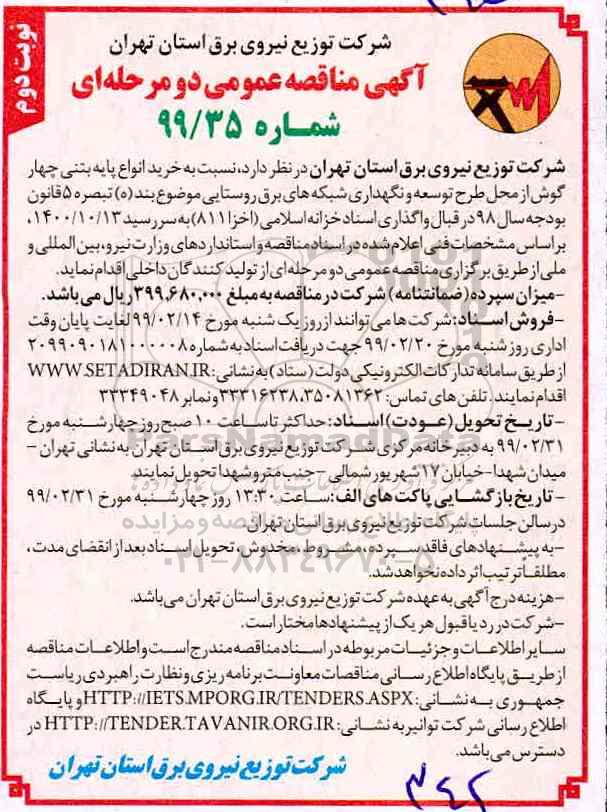 نوبت دوم
شرکت توزیع نیروی برق استان تهران
آگهی مناقصه عمومی دو مرحله‌ای
شماره ۹۹/۳۵
شرکت توزیع نیروی برق استان تهران در نظر دارد، نسبت به خرید انواع پایه بتنی چهار
گوش از محل طرح توسعه و نگهداری شبکه های برق روستایی موضوع بند (ه) تبصره ۵ قانون
بودجه سال ۹۸ در قبال واگذاری اسناد خزانه اسلامی (اخزا ۸۱۱) به سررسید ۱۴۰۰/۱۰/۱۳،
بر اساس مشخصات فنی اعلام شده در اسناد مناقصه و استانداردهای وزارت نیرو، بین المللی و
ملی از طریق برگزاری مناقصه عمومی دو مرحله ای از تولید کنندگان داخلی اقدام نماید.
-میزان سپرده (ضمانتنامه) شرکت در مناقصه به مبلغ ۳۹۹,۶۸۰,۰۰۰ ریال می باشد.
-فروش اسناد: شرکت ها می توانند از روز یک شنبه مورخ ۹۹/۰۲/۱۴ لغایت پایان وقت
اداری روز شنبه مورخ ۹۹/۰۲/۲۰ جهت دریافت اسناد به شماره ۲۰۹۹۰۹۰۱۸۱۰۰۰۰۰۸
از طریق سامانه تدارکات الکترونیکی دولت (ستاد) به نشانی: WWW.SETADIRAN.IR
اقدام نمایند. تلفن های تماس: ۳۵۰۸۱۳۶۲، ۳۳۳۱۶۲۳۸ و نمابر ۳۳۳۴۹۰۴۸
- تاریخ تحویل (عودت) اسناد: حداکثر تا ساعت ۱۰ صبح روز چهارشنبه مورخ
۹۹/۰۲/۳۱ به دبیرخانه مرکزی شرکت توزیع نیروی برق استان تهران به نشانی تهران -
میدان شهدا- خیابان ۱۷ شهریور شمالی - جنب مترو شهدا تحویل نمایند.
- تاریخ بازگشایی پاکت های الف: ساعت ۱۳:۳۰ روز چهارشنبه مورخ ۹۹/۰۲/۳۱
در سالن جلسات شرکت توزیع نیروی برق استان تهران.
-به پیشنهادهای فاقد سپرده، مشروط، مخدوش، تحویل اسناد بعد از انقضای مدت،
مطلقاً ترتیب اثر داده نخواهد شد.
-هزینه درج آگهی به عهده شرکت توزیع نیروی برق استان تهران می باشد.
-شرکت در رد یا قبول هر یک از پیشنهادها مختار است.
سایر اطلاعات و جزئیات مربوطه در اسناد مناقصه مندرج است و اطلاعات مناقصه
از طریق پایگاه اطلاع رسانی مناقصات معاونت برنامه ریزی و نظارت راهبردی ریاست
جمهوری به نشانی: HTTP://IETS.MPORG.IR/TENDERS.ASPX و پایگاه
اطلاع رسانی شرکت توانیر به نشانی: HTTP://TENDER.TAVANIR.ORG.IR در
دسترس می باشد.
شرکت توزیع نیروی برق استان تهران
۳۴۲
ParsNamadData
۰۲۱-۸۸۳۴۹۶۷۰-۵